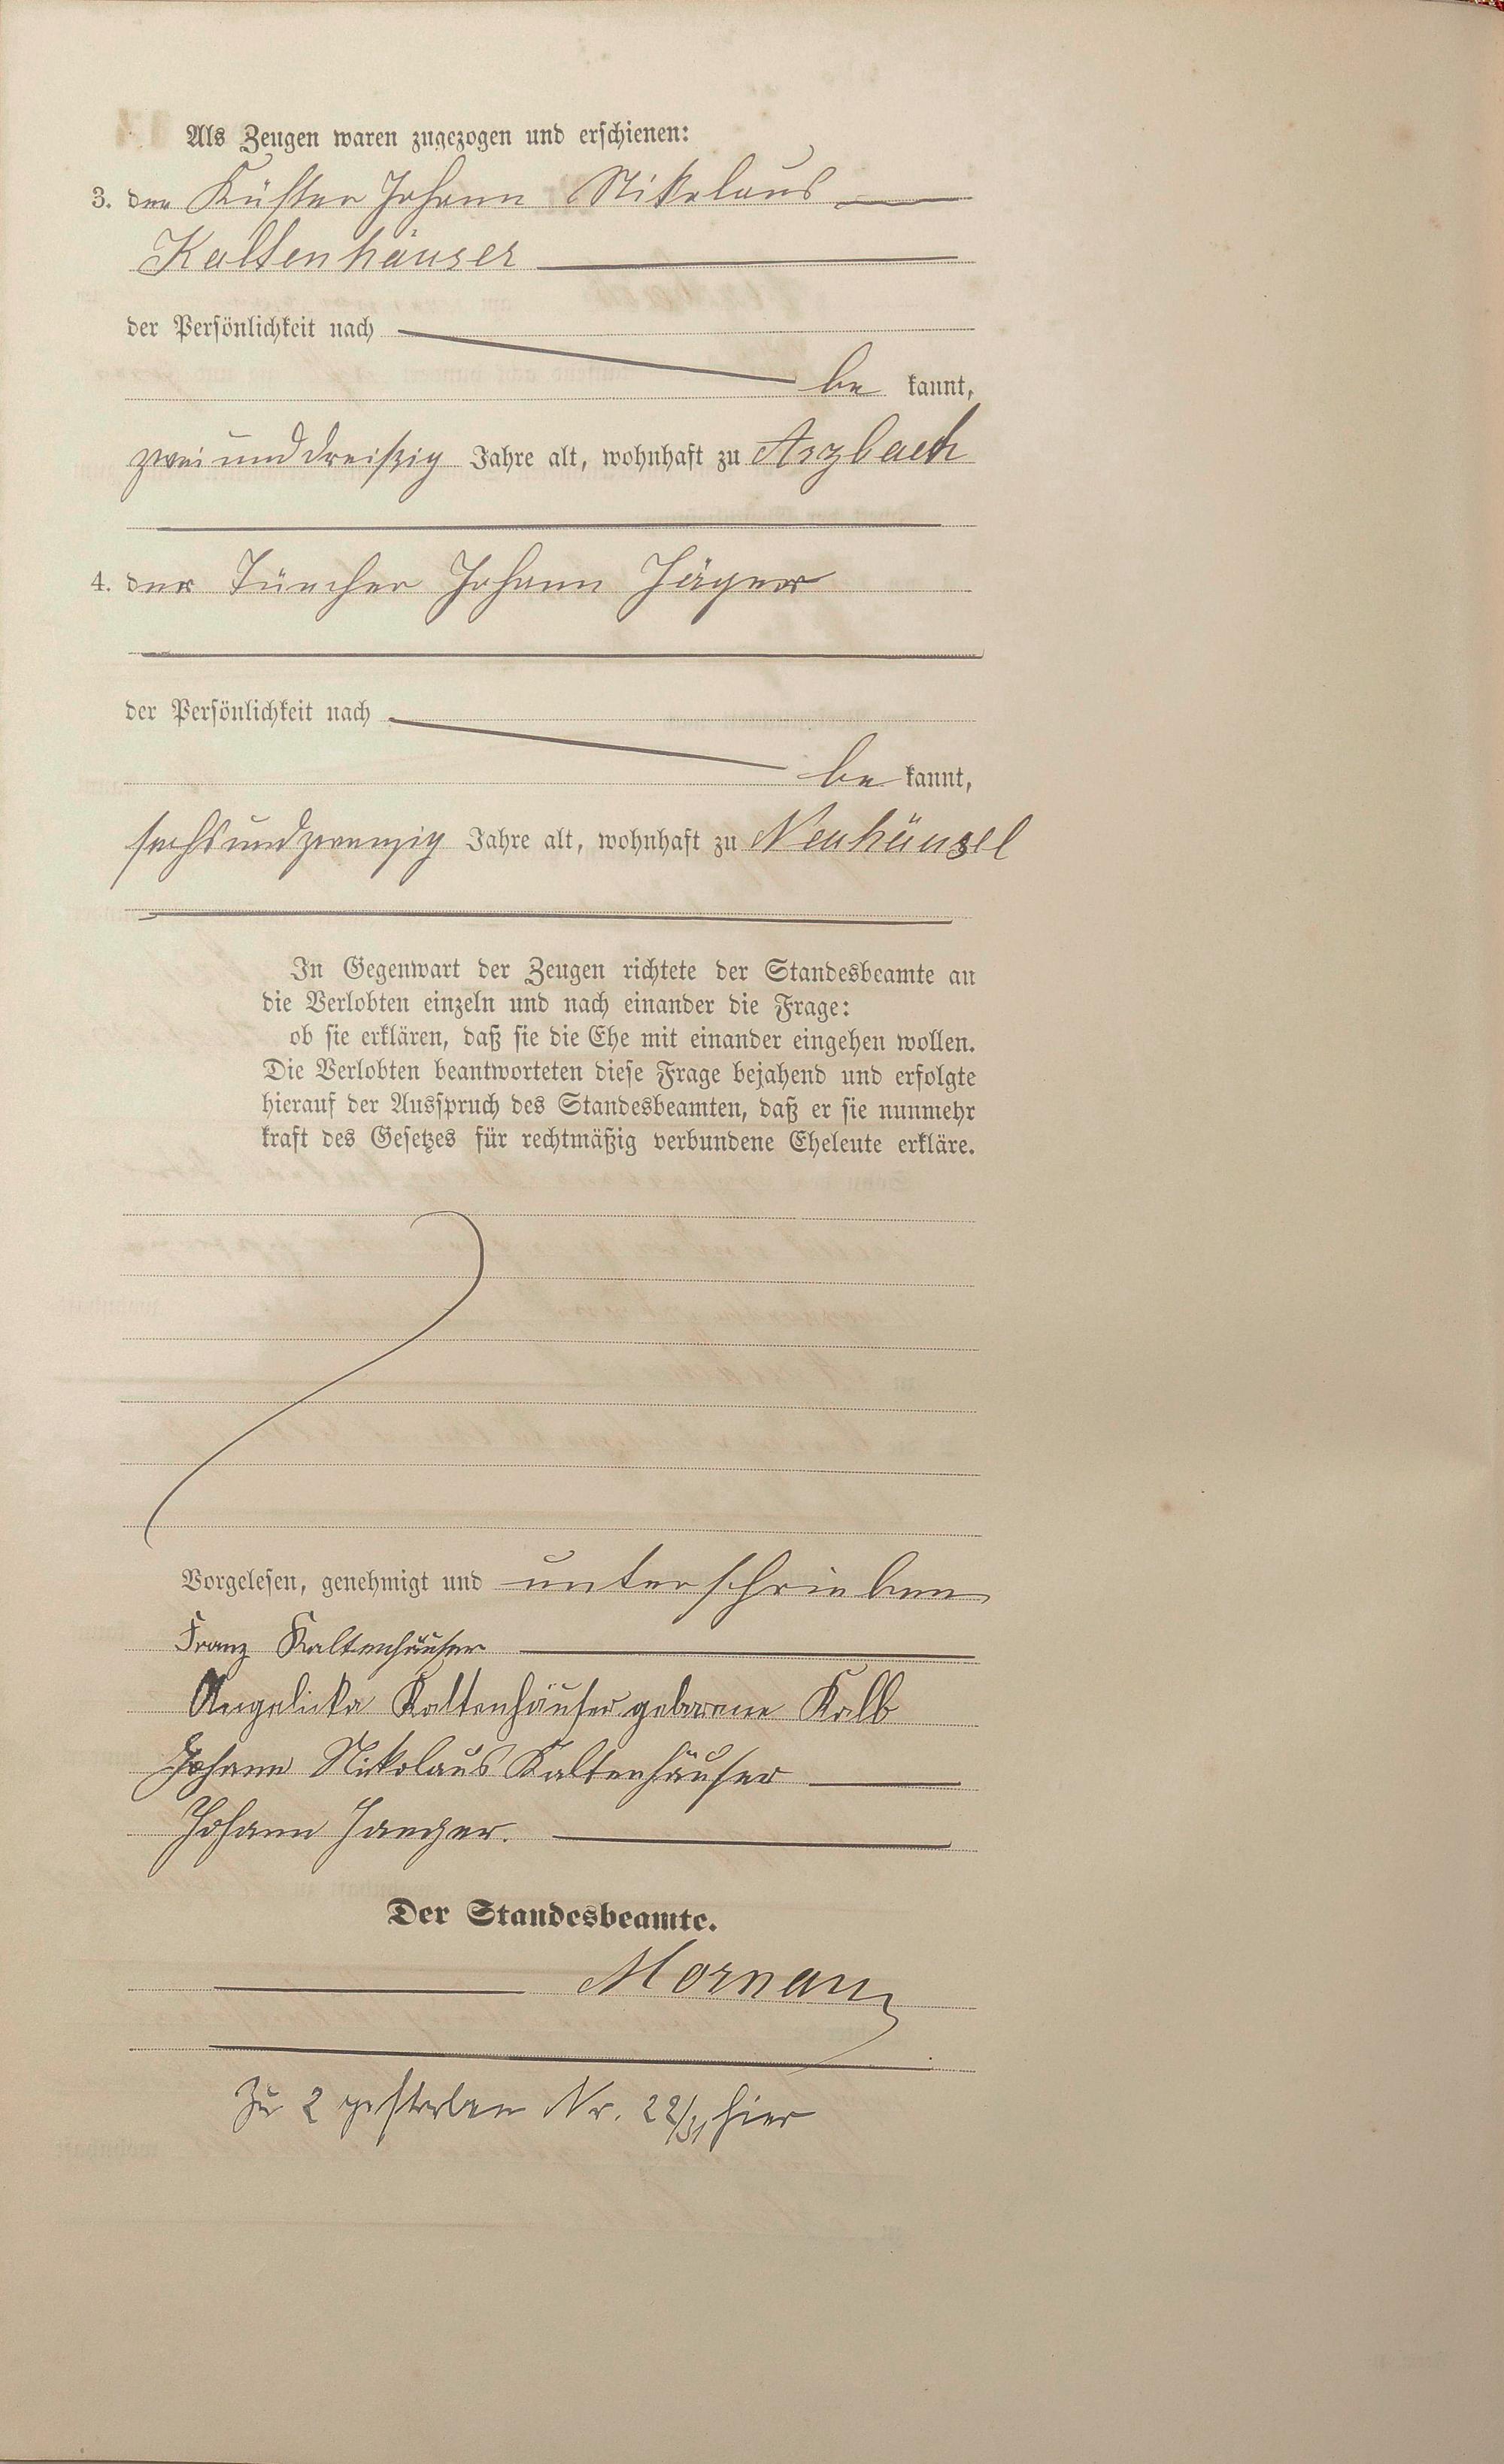 Als Zeugen waren zugezogen und erschienen:
3. der Küster Johann Nikolaus
Kaltenhäuser
der Persönlichkeit nach
be kannt,
zwei und dreißig Jahre alt, wohnhaft zu Arzbach
4. der Tüncher Johann Jäger
der Persönlichkeit nach
be kannt,
sechsundzwanzig Jahre alt, wohnhaft zu Neuhäusel
In Gegenwart der Zeugen richtete der Standesbeamte an
die Verlobten einzeln und nach einander die Frage:
ob sie erklären, daß sie die Ehe mit einander eingehen wollen.
Die Verlobten beantworteten diese Frage bejahend und erfolgte
hierauf der Ausspruch des Standesbeamten, daß er sie nunmehr
kraft des Gesetzes für rechtmäßig verbundene Eheleute erkläre.
Vorgelesen, genehmigt und unterschrieben
Franz Kaltenhäuser
Angelika Kaltenhäuser geborene Kalb
Johann Nikolaus Kaltenhäuser
Johann Jaeger.
Der Standesbeamte.
Zu 2 gestorben Nr. 22/31 hier